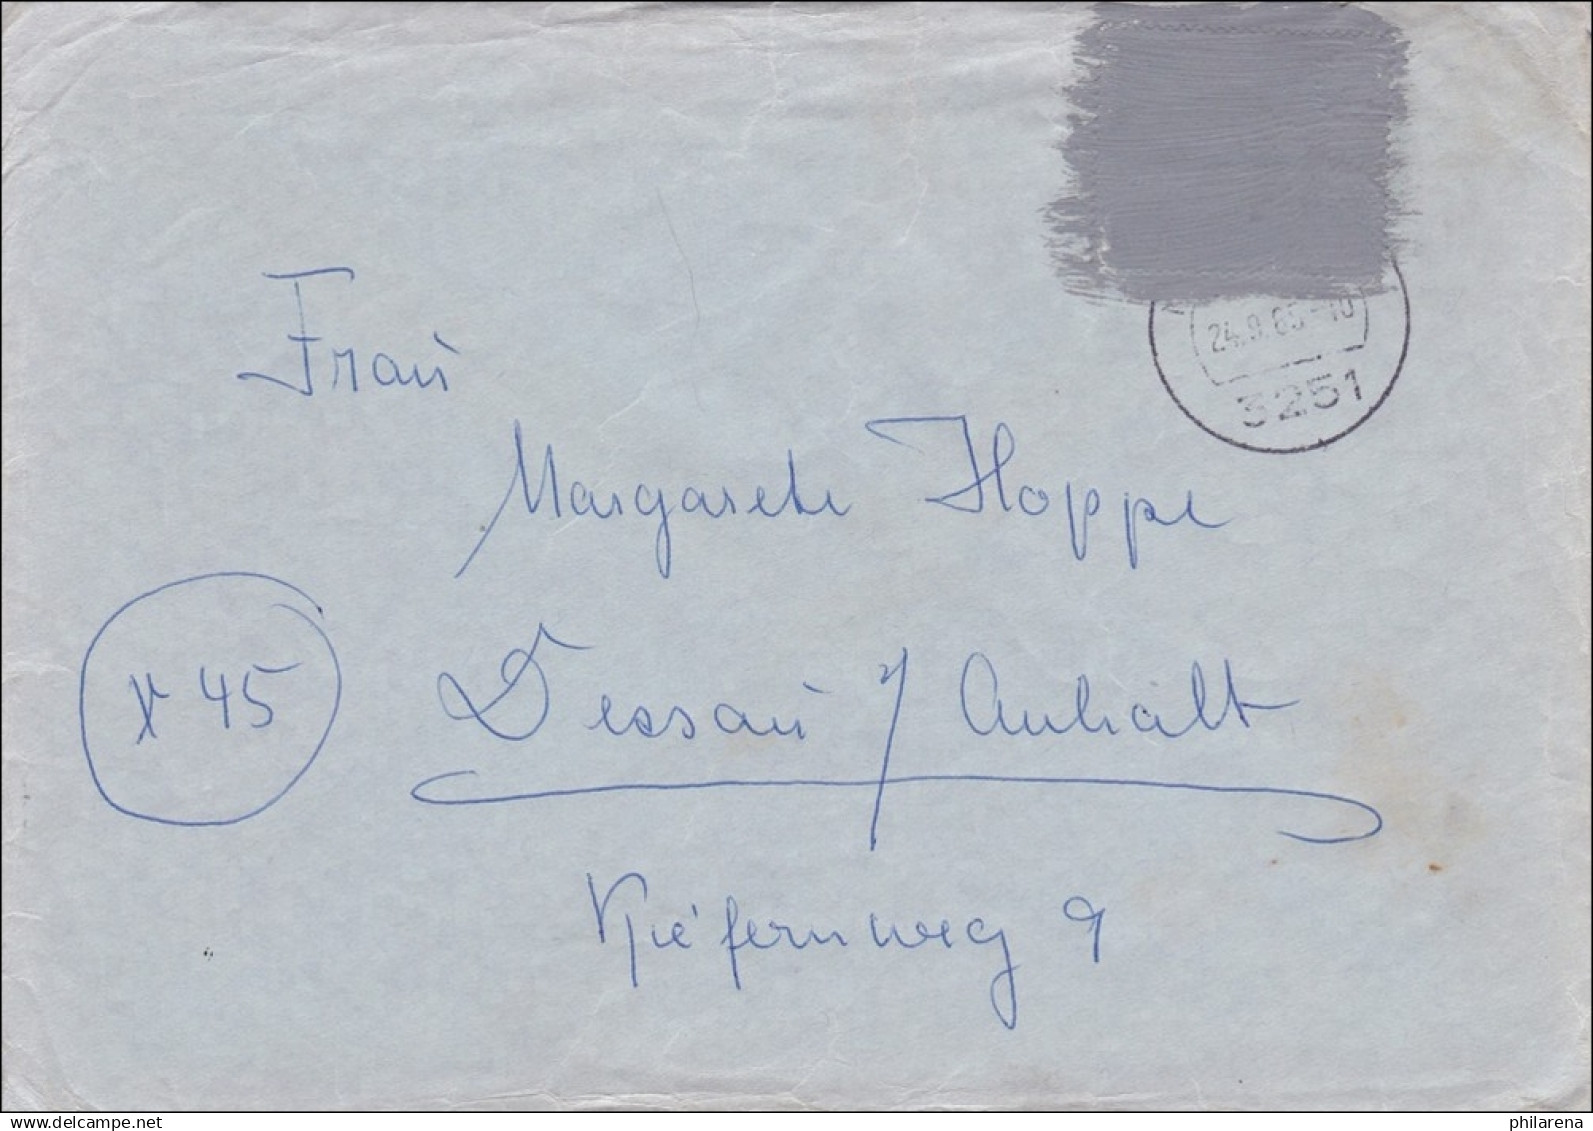 24.9.65-10
3251
Frau
Margarete Hoppe
X 45
Dessau / Anhalt
Kiefernweg 9
www.delcampe.net
philarena